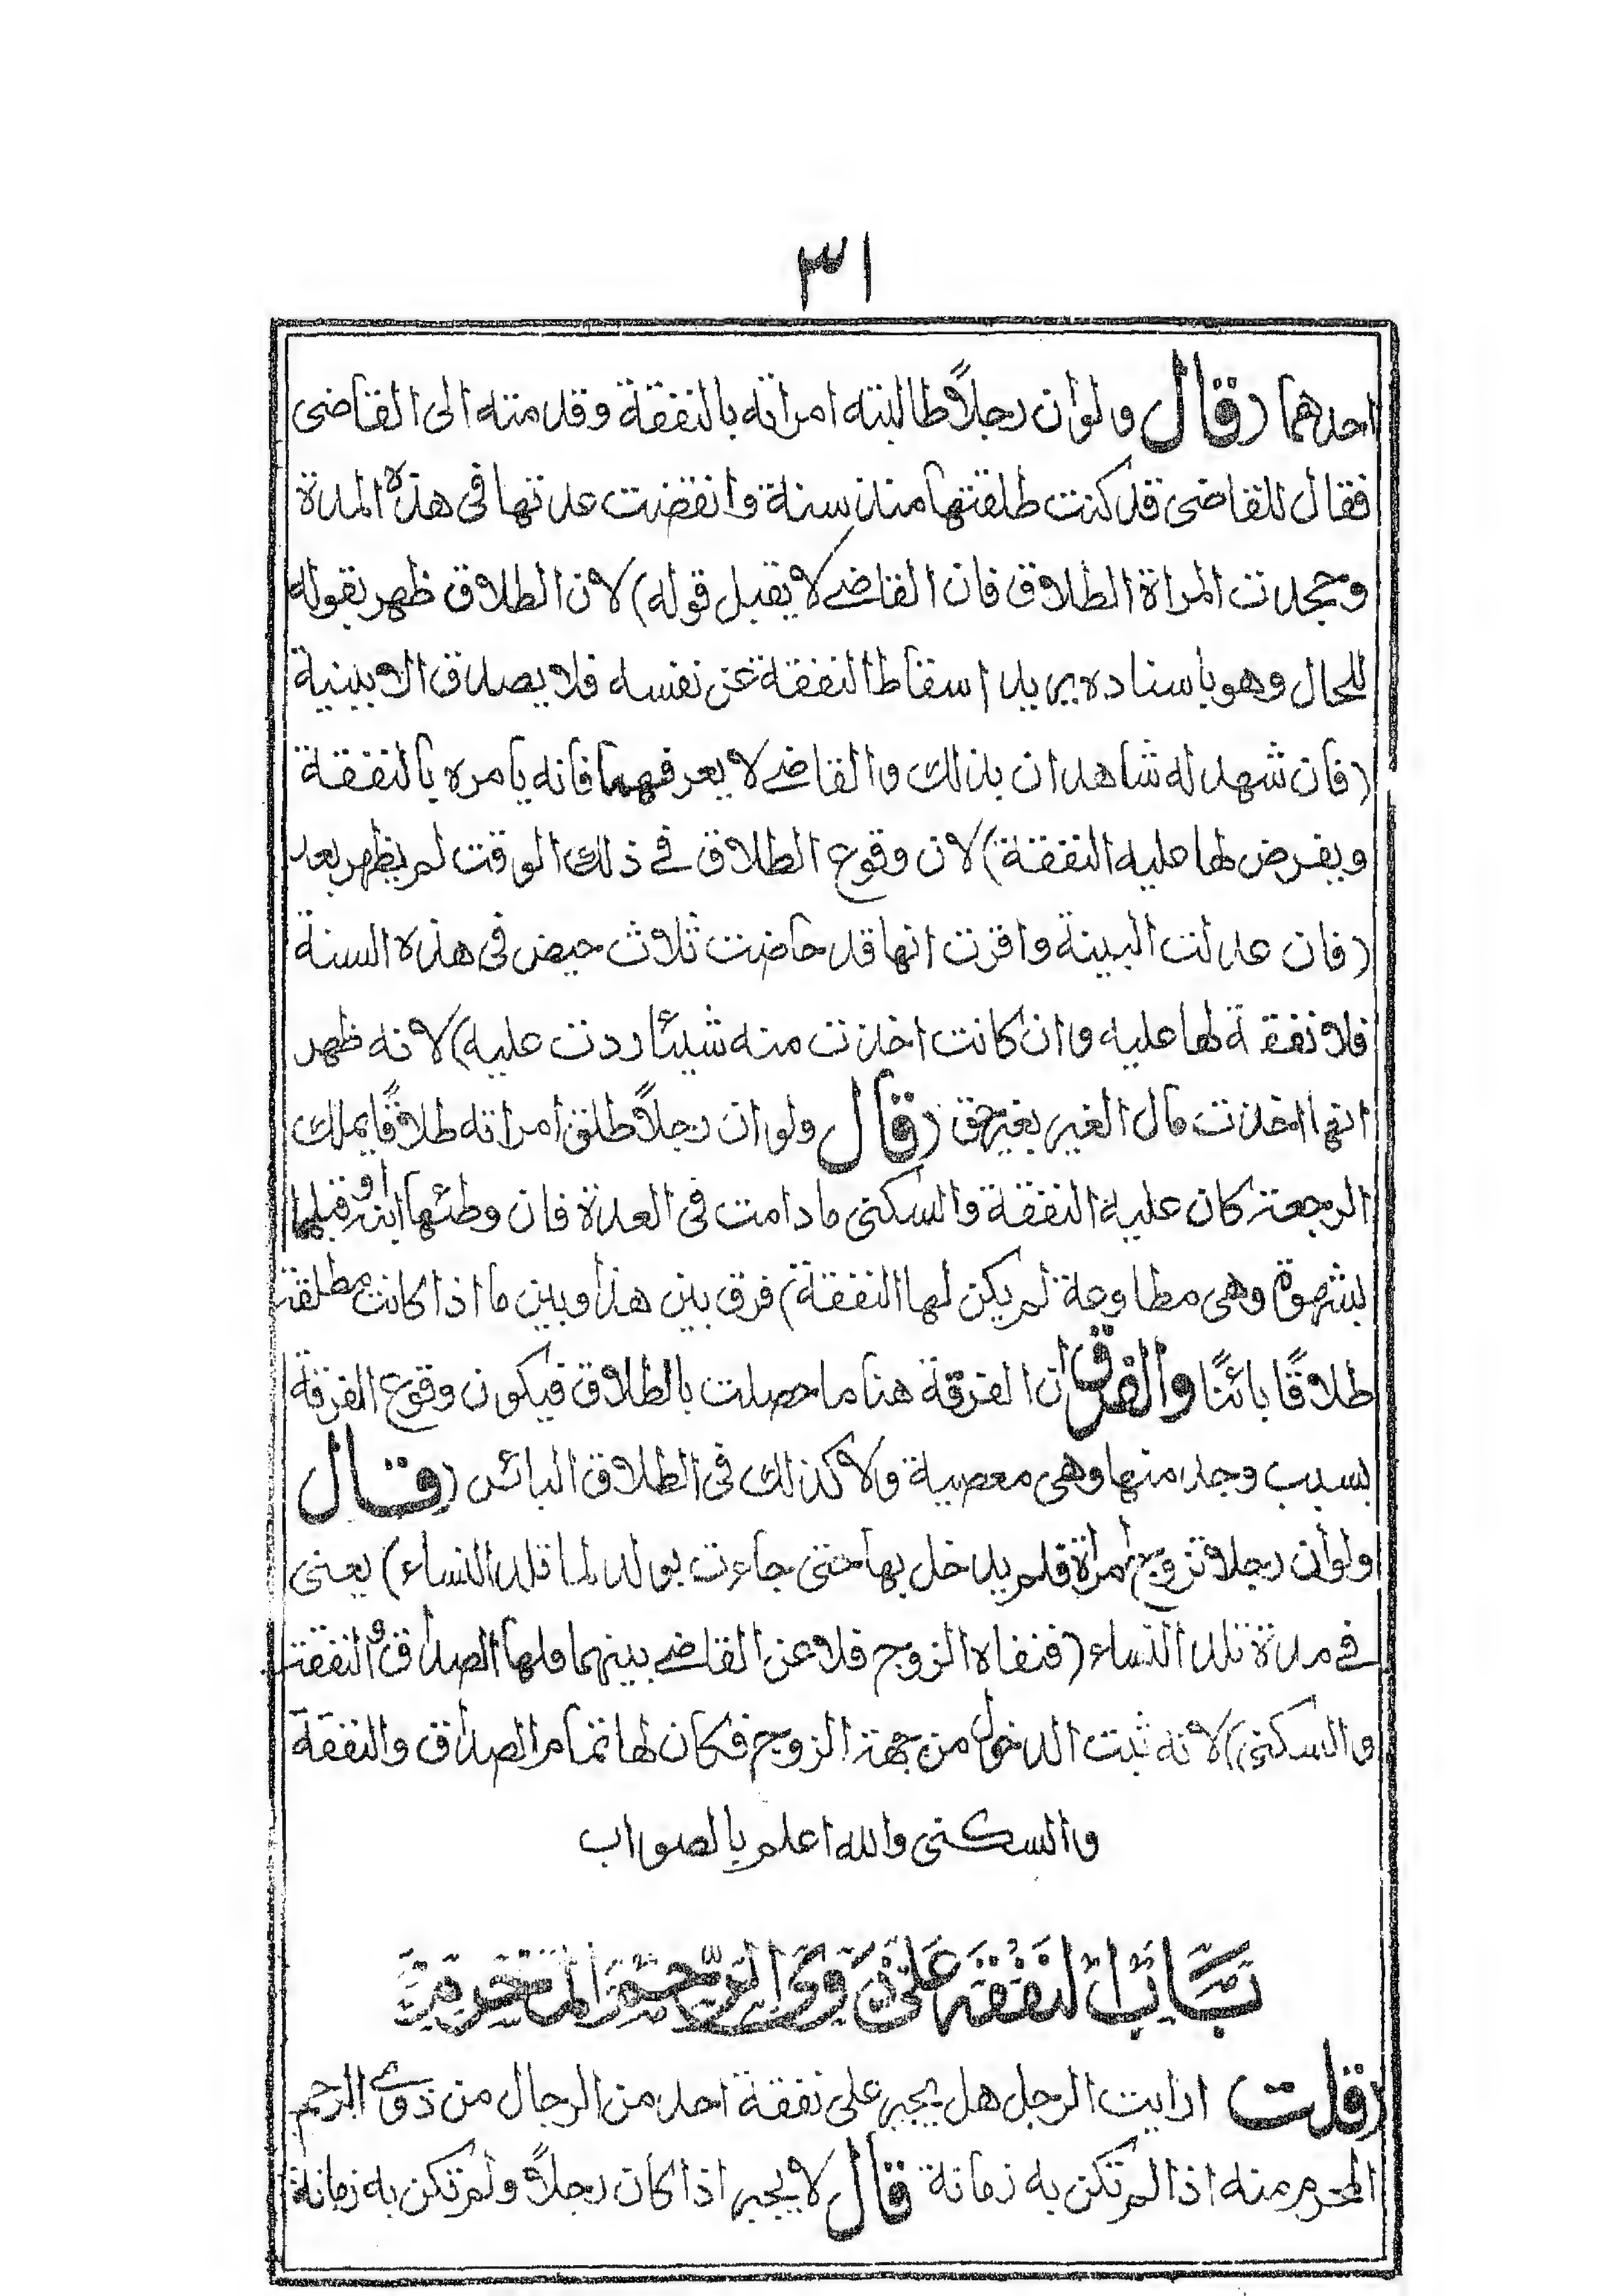 ٣١
احدهما (قال ولو أن رجلاً طالبته امراته بالنفقة وقدمته الى القاضى
فقال للقاضى قد كنت طلقتها منذ سنة وانقضت عدتها فى هذه المدة
وجحدت المراة الطلاق فان القاضے لا يقبل قوله) لان الطلاق ظهر بقوله
للحال وهو باسناده يريد اسقاط النفقة عن نفسه فلا يصدق الا ببينة
(فان شهد له شاهدان بذلك والقاضے لا يعرفهما فانه يامره بالنفقة
ويفرض لها عليه النفقة) لان وقوع الطلاق فے ذلك الوقت لم يظهر بعد
(فان عدلت البينة واقرت انها قد حاضت ثلاث حيض فى هذه السنة
فلا نفقة لها عليه وان كانت اخذت منه شيئا ردت عليه) لانه ظهر
انها اخذت مال الغير بغير حق (قال ولو ان رجلاً طلق امراته طلاقًا يملك
الرجعة كان عليه النفقة والسكنى ما دامت فى العدة فان وطئها ابنه او قبلها
بشهوة وهى مطاوعة لم يكن لها النفقة) فرق بين هذا وبين ما اذا كانت مطلقة
طلاقًا بائنًا والفرق ان الفرقة هنا ما حصلت بالطلاق فيكون وقوع الفرقة
بسبب وجد منها وهى معصية ولا كذلك فى الطلاق البائن (قال
ولو أن رجلا تزوج امراة فلم يدخل بها حتى جاءت بولد لما تلد النساء) يعنى
فے مدة تلد النساء (فنفاه الزوج فلاعن القاضے بينهما ولها الصداق والنفقة
والسكنى) لانه ثبت الدخول من جهة الزوج فكان لها تمام الصداق والنفقة
والسكنى والله اعلم بالصواب
بَابُ النَفَقَةِ عَلَى ذَوِى الرَّحِمِ المَحْرَمِ
(قلت ارايت الرجل هل يجبر على نفقة احد من الرجال من ذوے الرحم
المحرم منه اذا لم تكن به زمانة قال لا يجبر اذا كان رجلاً ولم تكن به زمانة